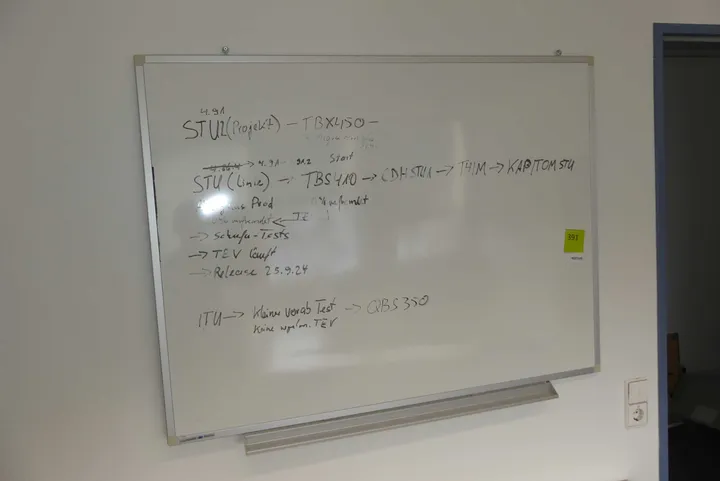 4.91
STU2(Projekt) – TBX450 –
4.91- 91.2 Start
STU (Linie) – TBS410 → CDHSTU1 → T41M → KAP/TOMSTU
Prod
← TE
→ Schufa-Tests
→ TEV
→ Release 25.9.24
ITU → kleiner vorab Test → QBS350
keine TEV
391